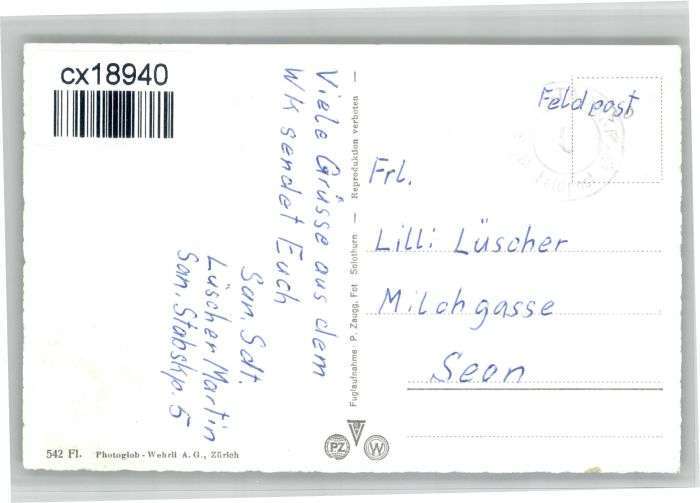 cx18940
Viele Grüsse aus dem
WK sendet Euch
San Sdt.
Lüscher Martin
San. Stabskp. 5
Fuglaufnahme: P. Zaugg, Fot Solothurn — Reproduktion verboten —
Feldpost
Frl.
Lilli Lüscher
Milchgasse
Seon
PZ
W
542 Fl. Photoglob - Wehrli A. G., Zürich